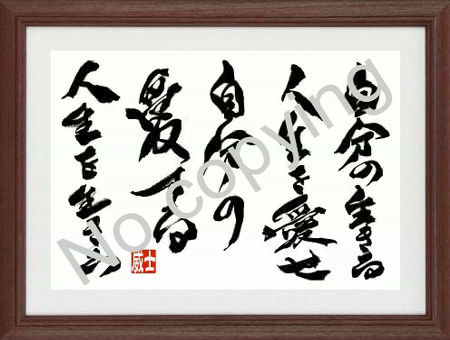 自分の生きる
人生を愛せ
自分の
愛する
人生を生きろ
威士
No copying